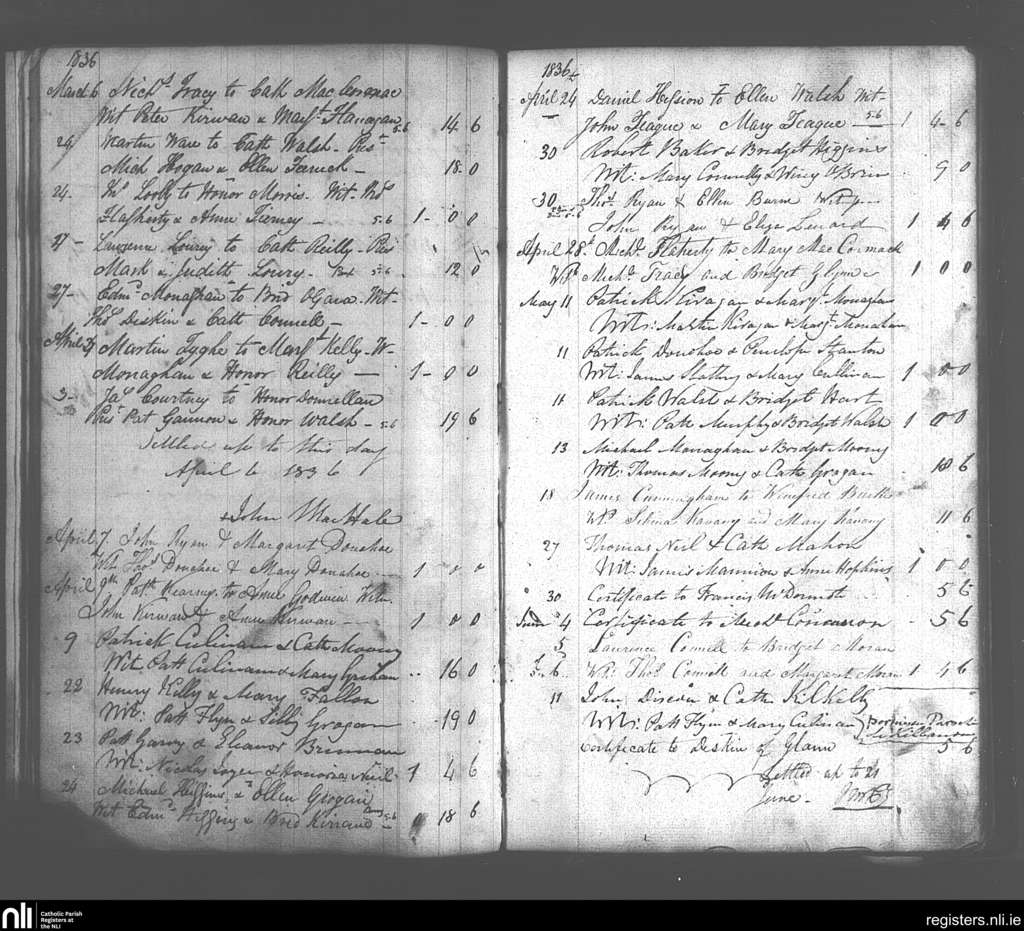 1836
March 6 Nichs. Tracy to Cath MacCormac
Wit Peter Kirwan & Margt. Flanagan 5-6 14 6
24 Martin Ware to Cath Walsh - Pist
Mich Hogan & Ellen 18-0
24- Ths. to Honor Morris. Wit. Ths
Flagherty & Anne Feeney - 5-6 1- 0 0
27- Lawrence Lowry to Cath Reilly -
Mark & Judith Lowry - 5-6 12 0
27- Edmd. Monaghan to Brid OGara. Wit-
Ths. Diskin & Cath Connell - 1- 0 0
April Martin Tyghe to Margt Kelly - W-
Monaghan & Honor Reilly - 1- 0 0
3- Jas. Courtney to Honor Donnellan
Pat Gannon & Honor Walsh - 5-6 19 6
Settled up to this day
April 6 1836
John MacHale
April 7. John Ryan & Margaret Donohoe
Wit Thos. Donohoe & Mary Donohoe 1 0 0
April 9th Patt Kearns to Anne Godwin Witn.
John Kirwan & Anne Kirwan - 1 0 0
9 Patrick Culinan & Cath Moony
Wit. Patt Culinan & Mary Graham 16 0
22 Henry Kelly & Mary Fallon
Wit: Patt Flyn & Sibby Grogan 19 0
23 Patt Garvy & Eleanor Brennan
Wit: Nicolas & Honoria Neil 1 4 6
24 Michael Higgins & Ellen Grogan
Wit Edmd. Higgins & Brid Kirwan 5-6 0 18 6
1836
April 24 Daniel Hession to Ellen Walsh Wit-
John Teague & Mary Teague 5-6 1 4-6
30 Robert Baker & Bridget Higgins
Wit: Mary Connelly & Winy O'Brien 9 0
30 Thos. Ryan & Ellen Burne Wit p--
John Ryan & Eliza Lenard 1 4 6
April 28th. Michl. Flaherty to Mary MacCormack
Wts Michl. Tracy and Bridget Glynn 1 0 0
May 11 Patrick Kiragan & Margt. Monaghan
Wits: Martin Kiragan & Margt. Monahan
11 Patrick Donohoe & Penelope Stanton
Wit: James Slattery & Mary Cullinan 1 0 0
11 Patrick Walsh & Bridget Hart
Wit: Patk Murphy & Bridget Walsh 1 0 0
13 Michael Monaghan & Bridget Moony
Wit: Thomas Moony & Cath Grogan 18 6
18 James Cunningham to Winefred Burke
Wts Selina Kavany and Mary Kavany 11 6
27 Thomas Neil & Cath Mahon
Wit: James Mannion & Anne Hopkins 1 0 0
30 Certificate to Francis McDermot 5 6
June 4 Certificate to Michl. Concannon - 5 6
5 Laurence Connell to Bridget Moran
5-6 Wts Thos. Connell and Margaret Moran 1 4 6
11 John Diskin & Cath Kilkelly
Wits: Patt Flyn & Mary Culinan
Certificate to Diskin of Glann 5 6
Settled up to 21
June -
nli Catholic Parish
Registers at
the NLI
registers.nli.ie